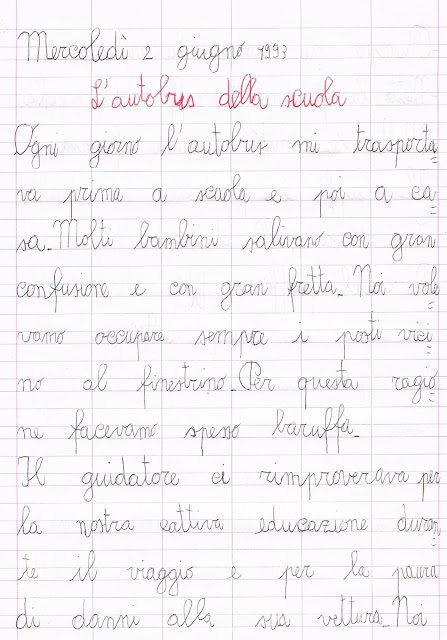 Mercoledì 2 giugno 1993
L'autobus della scuola
Ogni giorno l'autobus mi trasporta=
va prima a scuola e poi a ca=
sa. Molti bambini salivano con gran
confusione e con gran fretta. Noi vole
vamo occupare sempre i posti vici=
no al finestrino. Per questa ragio=
ne facevamo spesso baruffa.
Il guidatore ci rimproverava per
la nostra cattiva educazione duran=
te il viaggio e per la paura
di danni alla sua vettura. Noi